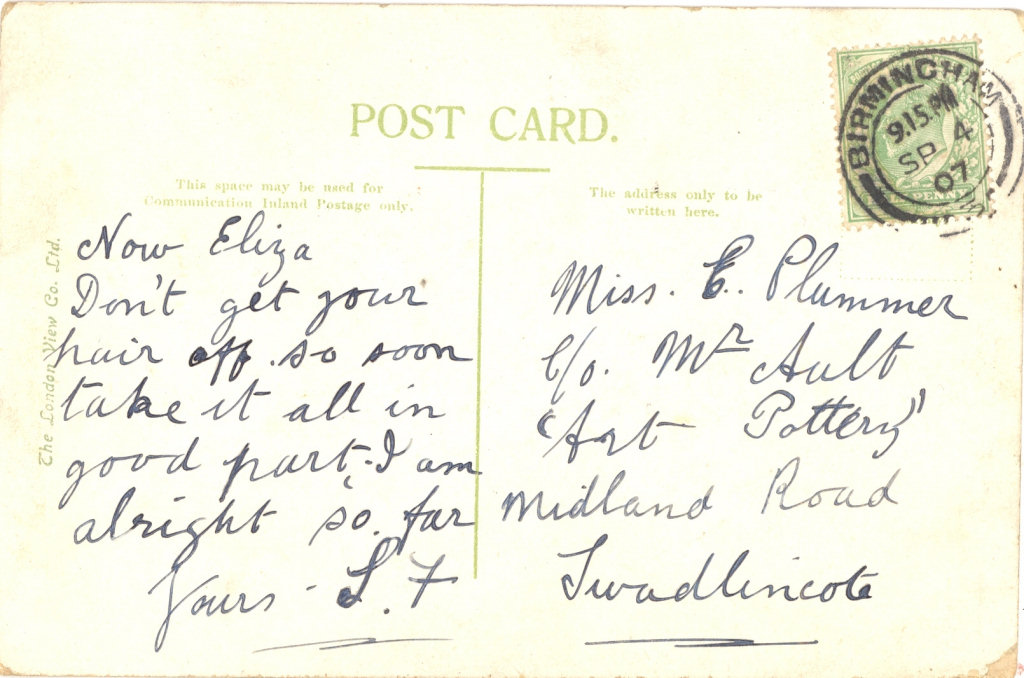 POST CARD.
This space may be used for
Communication Inland Postage only.
The address only to be
written here.
BIRMINGHAM
9.15.PM
SP 4
07
PENNY
The London View Co. Ltd.
Now Eliza
Don't get your
hair off. so soon
take it all in
good part, I am
alright so. far
Yours - S. F
Miss. E. Plummer
C/o. Mr Ault
"Art Pottery"
Midland Road
Swadlincote